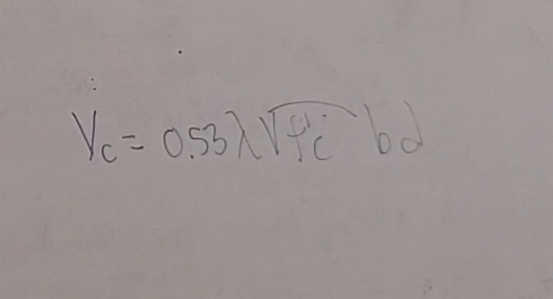 Vc = 0.53 λ √f'c bd